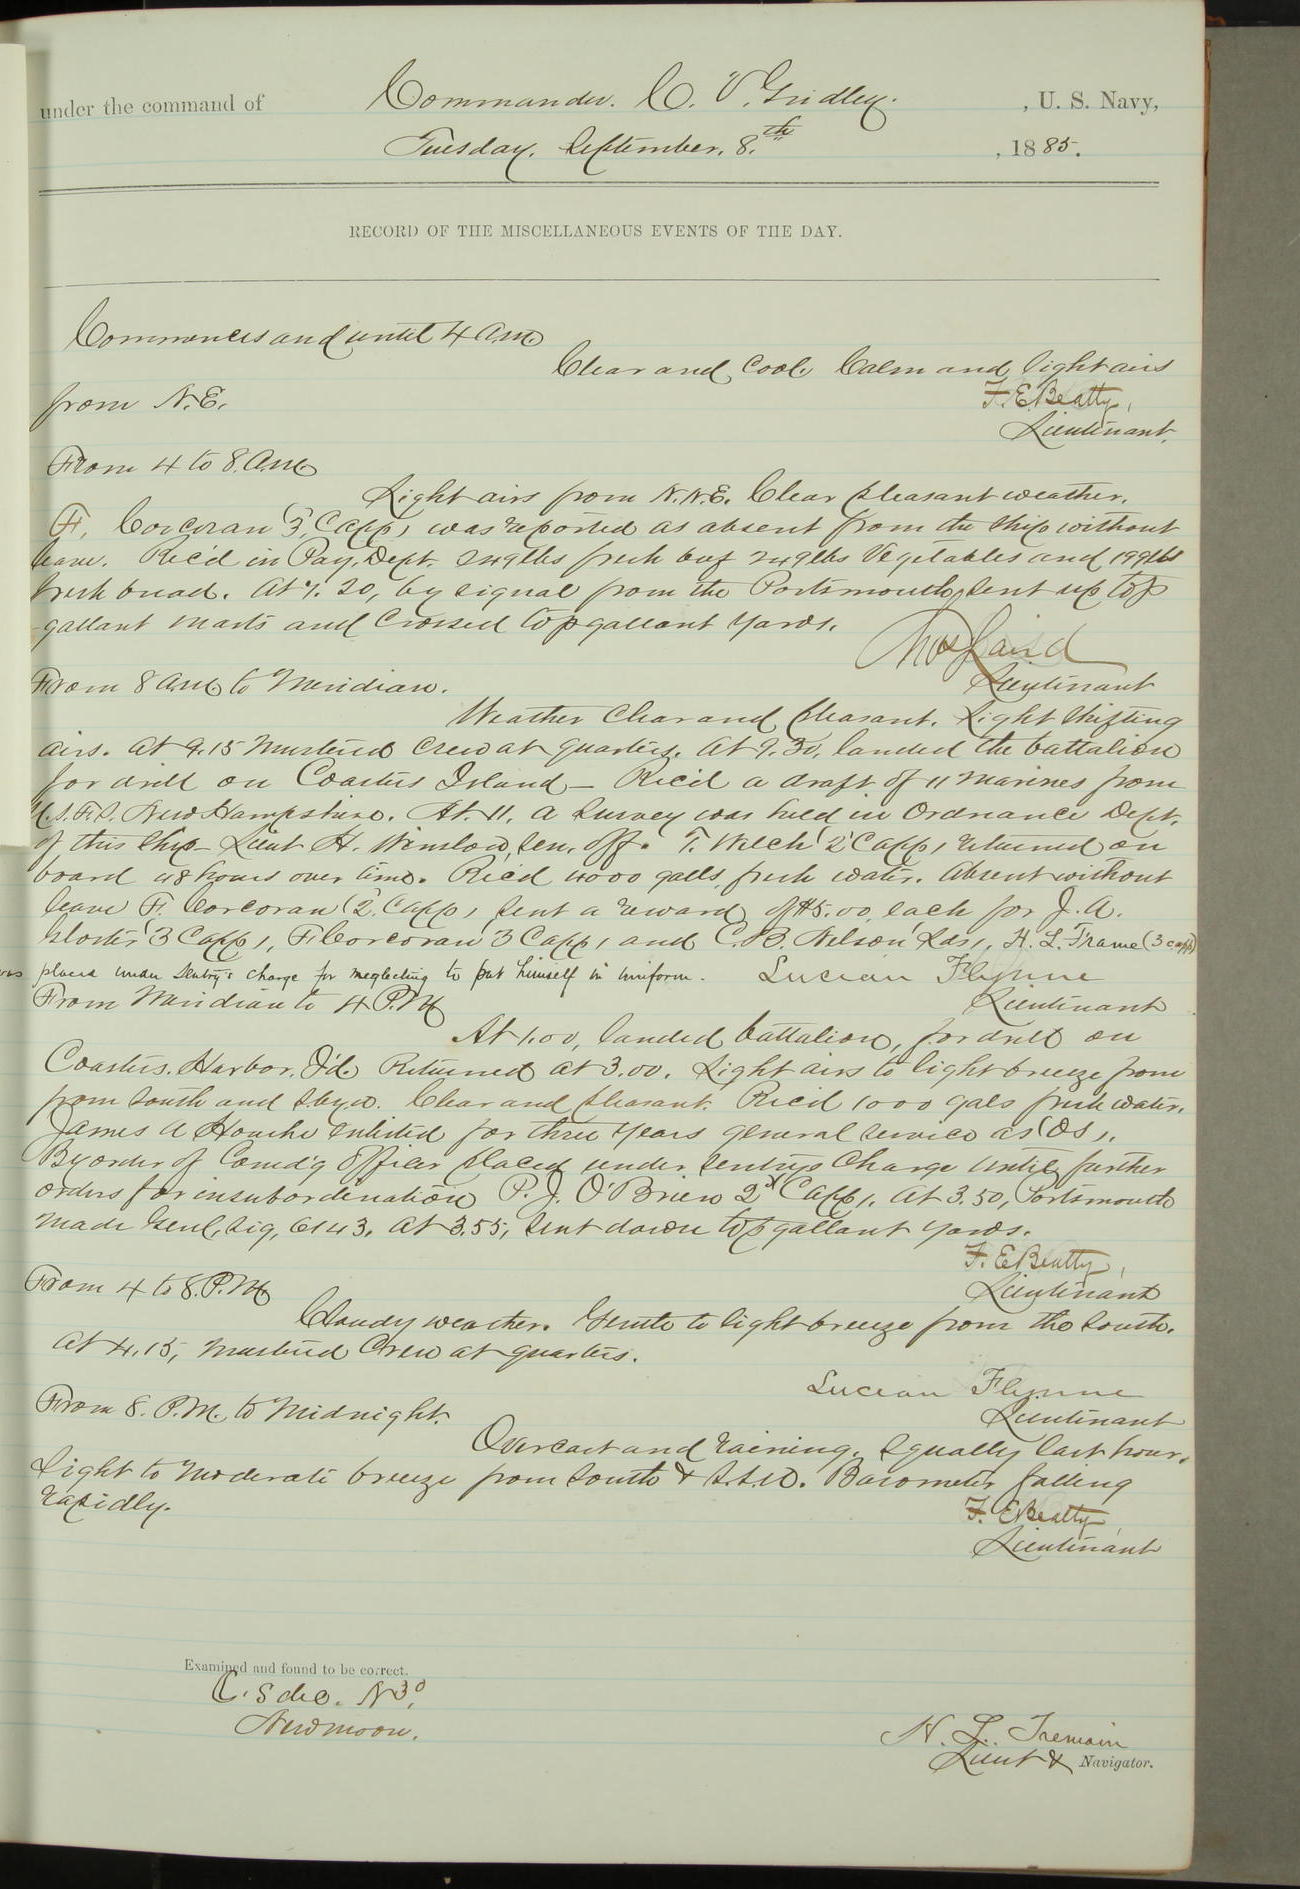 under the command of Commander. C. V. Gridley. , U. S. Navy,
Tuesday. September. 8.th , 1885.
RECORD OF THE MISCELLANEOUS EVENTS OF THE DAY.
Commences and until 4 a.m.
Clear and cool. Calm and light airs
from N.E.
F. E. Beatty,
Lieutenant.
From 4 to 8. a.m.
Light airs from N.N.E. Clear pleasant weather.
F. Corcoran (3, Capp) was reported as absent from the ship without
leave. Rec'd in Pay, Dept. 249 lbs fresh beef 249 lbs Vegetables and 199 lbs
fresh bread. At 7.20, by signal from the Portsmouth, sent up top
gallant masts and crossed topgallant yards.
Thos Laird
Lieutenant
From 8 a.m. to Meridian.
Weather clear and pleasant. Light shifting
airs. At 9.15 mustered crew at quarters. At 9.30, landed the battalion
for drill on Coasters Island – Rec'd a draft of 11 marines from
U.S.F.S. New Hampshire. At. 11. a survey was held in Ordnance Dept.
of this ship – Lieut H. Winslow, sen. off. T. Welch (2 Capp) returned on
board 48 hours over time. Rec'd 4000 galls, fresh water. Absent without
leave F. Corcoran (2. Capp) sent a reward of $5.00, each for J. A.
(3 Capp), F. Corcoran (3 Capp) and C. B. Nelson (Lds), H. L. Frame (3 capp)
was placed under sentry's charge for neglecting to put himself in uniform.
Lucian Flynne
Lieutenant
From Meridian to 4 P.M.
At 1.00, landed battalion, for drill on
Coasters. Harbor. I'd. Returned at 3.00. Light airs to light breeze from
from South and S. by W. Clear and pleasant. Rec'd 1000 gals fresh water.
James A enlisted for three years general service as (OS).
By order of Comd'g Officer placed under sentrys charge until further
orders for insubordination P. J. O'Brien 2d (Capp). At 3.50, Portsmouth
made Genl, Sig, 6143. At 3.55, sent down topgallant yards.
F. E. Beatty,
Lieutenant
From 4 to 8. P.M.
Cloudy weather. Gentle to light breeze from the South.
At 4.15, mustered Crew at quarters.
Lucian Flynne
Lieutenant
From 8. P.M. to Midnight.
Overcast and raining. Squally last hour.
Light to moderate breeze from South & S.S.W. Barometer falling
rapidly.
F. E. Beatty
Lieutenant
Examined and found to be correct.
New moon.
N. L. Tremain
Lieut & Navigator.